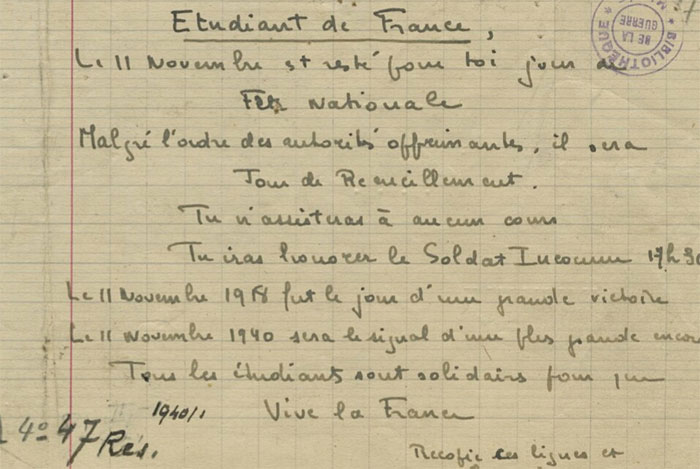 Etudiant de France,
Le 11 Novembre est resté pour toi jour de
Fête Nationale
Malgré l'ordre des autorités opprimantes, il sera
Jour de Recueillement.
Tu n'assisteras à aucun cours
Tu iras honorer le Soldat Inconnu 17h 30
Le 11 Novembre 1918 fut le jour d'une grande victoire
Le 11 Novembre 1940 sera le signal d'une plus grande encore
Tous les étudiants sont solidaires pour que
Vive la France
1940/1
4° 47 Rés.
Recopie ces lignes et
BIBLIOTHÈQUE
DE LA
GUERRE